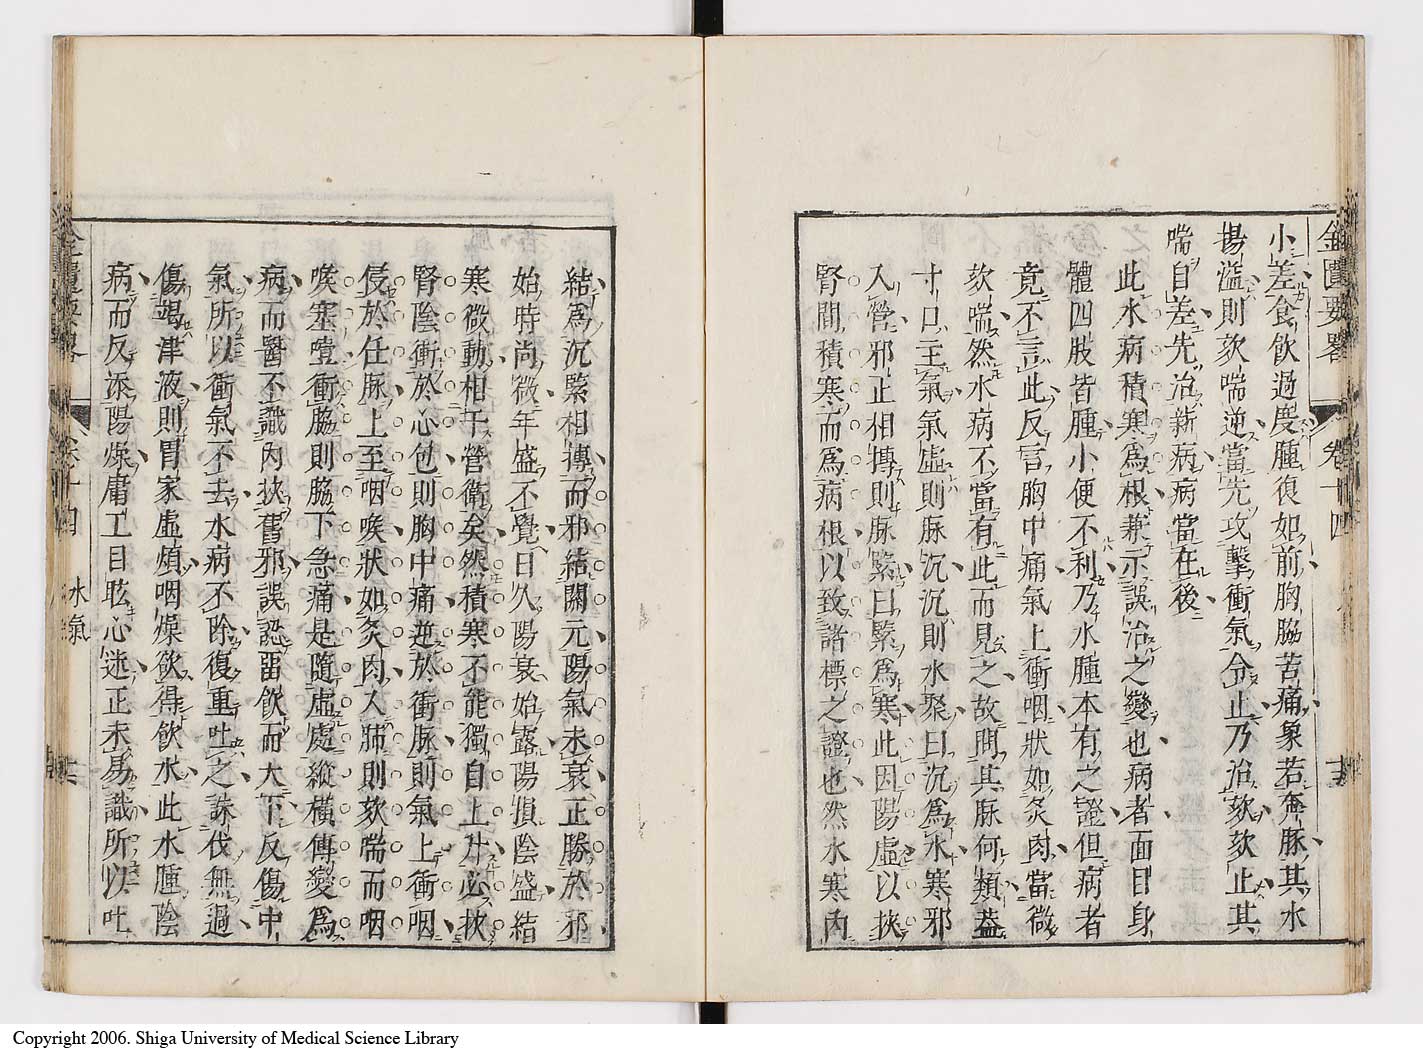 金匱要畧 卷十四
小差食飮過度腫復如前胸脇苦痛象若奔豚其水
揚溢則欬喘逆當先攻擊衝氣令止乃治欬欬止其
喘自差先治新病病當在後
此水病積寒爲根兼示誤治之變也病者面目身
體四肢皆腫小便不利乃水腫本有之證但病者
竟不言此反言胸中痛氣上衝咽狀如炙肉當微
欬喘然水病不當有此而見之故問其脉何類蓋
寸口主氣氣虛則脉沉沉則水聚曰沉爲水寒邪
入營邪正相搏則脉緊曰緊爲寒此因陽虛以挾
腎間積寒而爲病根以致諸標之證也然水寒內
結爲沉緊相摶而邪結關元陽氣未衰正勝於邪
始時尚微年盛不覺日久陽衰始露陽損陰盛結
寒微動相干營衛矣然積寒不能獨自上升必挾
腎陰衝於心包則胸中痛逆於衝脉則氣上衝咽
侵於任脉上至咽喉狀如炙肉入肺則欬喘而咽
喉塞噎衝脇則脇下急痛是隨虛處縱橫傳變爲
病而醫不識內挾舊邪誤認畱飮而大下反傷中
氣所以衝氣不去水病不除復重吐之誅伐無過
傷竭津液則胃家虛煩咽燥飮得飮水此水腫陰
病而反添陽燥庸工目眩心迷正未易識所以吐
卷十四 水氣